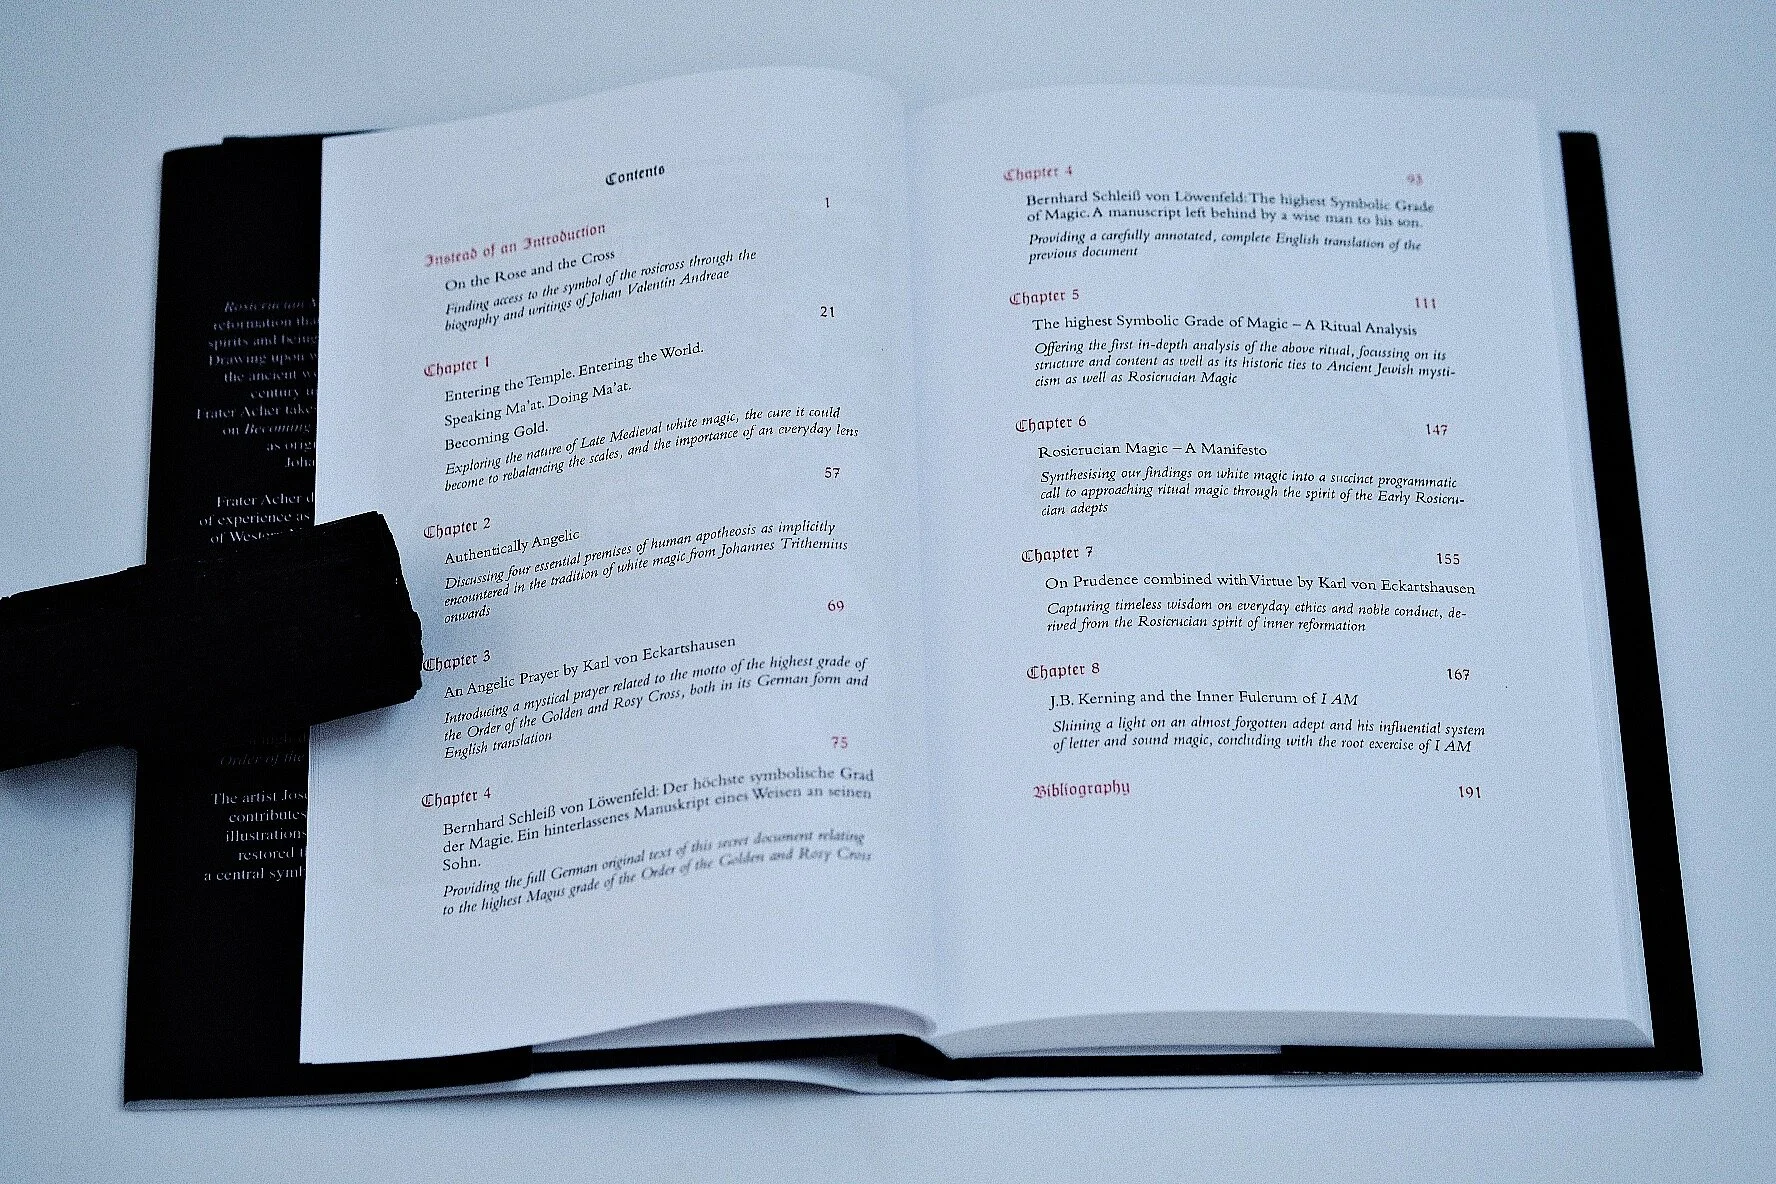 Rosicrucian
reformation
spirits and being
Drawing upon
the ancient
century
Frater Acher
on Becoming
as
Frater Acher
of experience as
of
Order of the
The artist
contributes
illustrations
restored
a central
Contents
1
Instead of an Introduction
On the Rose and the Cross
Finding access to the symbol of the rosicross through the
biography and writings of Johan Valentin Andreae
21
Chapter 1
Entering the Temple. Entering the World.
Speaking Ma'at. Doing Ma'at.
Becoming Gold.
Exploring the nature of Late Medieval white magic, the cure it could
become to rebalancing the scales, and the importance of an everyday lens
57
Chapter 2
Authentically Angelic
Discussing four essential premises of human apotheosis as implicitly
encountered in the tradition of white magic from Johannes Trithemius
onwards
69
Chapter 3
An Angelic Prayer by Karl von Eckartshausen
Introducing a mystical prayer related to the motto of the highest grade of
the Order of the Golden and Rosy Cross, both in its German form and
English translation
75
Chapter 4
Bernhard Schleiß von Löwenfeld: Der höchste symbolische Grad
der Magie. Ein hinterlassenes Manuskript eines Weisen an seinen
Sohn.
Providing the full German original text of this secret document relating
to the highest Magus grade of the Order of the Golden and Rosy Cross
Chapter 4 93
Bernhard Schleiß von Löwenfeld: The highest Symbolic Grade
of Magic. A manuscript left behind by a wise man to his son.
Providing a carefully annotated, complete English translation of the
previous document
Chapter 5 111
The highest Symbolic Grade of Magic – A Ritual Analysis
Offering the first in-depth analysis of the above ritual, focussing on its
structure and content as well as its historic ties to Ancient Jewish mysti-
cism as well as Rosicrucian Magic
Chapter 6 147
Rosicrucian Magic – A Manifesto
Synthesising our findings on white magic into a succinct programmatic
call to approaching ritual magic through the spirit of the Early Rosicru-
cian adepts
Chapter 7 155
On Prudence combined with Virtue by Karl von Eckartshausen
Capturing timeless wisdom on everyday ethics and noble conduct, de-
rived from the Rosicrucian spirit of inner reformation
Chapter 8 167
J.B. Kerning and the Inner Fulcrum of I AM
Shining a light on an almost forgotten adept and his influential system
of letter and sound magic, concluding with the root exercise of I AM
Bibliography 191